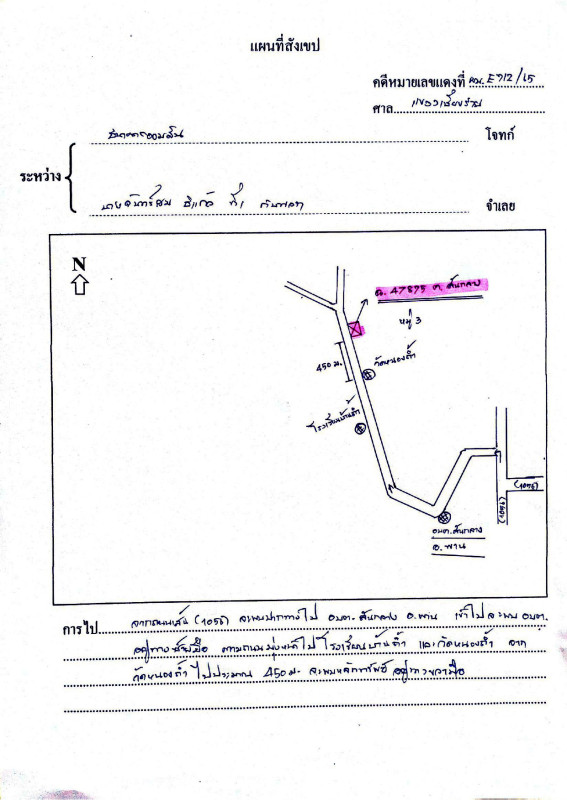 แผนที่สังเขป
คดีหมายเลขแดงที่ ผบ.E712/65
ศาล แขวงเชียงราย
ธนาคารออมสิน โจทก์
ระหว่าง
นายจันทร์สม จำเลย
N
ฉ. 47895 ต. สันกลาง
หมู่ 3
450 ม.
วัดหนองถ้ำ
โรงเรียนบ้านถ้ำ
(1056)
(1056)
อบต.สันกลาง
อ. พาน
การไป จากถนนเส้น (1056) จะพบปากทางไป อบต.สันกลาง อ.พาน เข้าไปจะพบ อบต.
อยู่ทางซ้ายมือ ตามถนนมุ่งหน้าไปโรงเรียนบ้านถ้ำ และวัดหนองถ้ำ จาก
วัดหนองถ้ำไปประมาณ 450 ม. จะพบหลักทรัพย์ อยู่ทางขวามือ